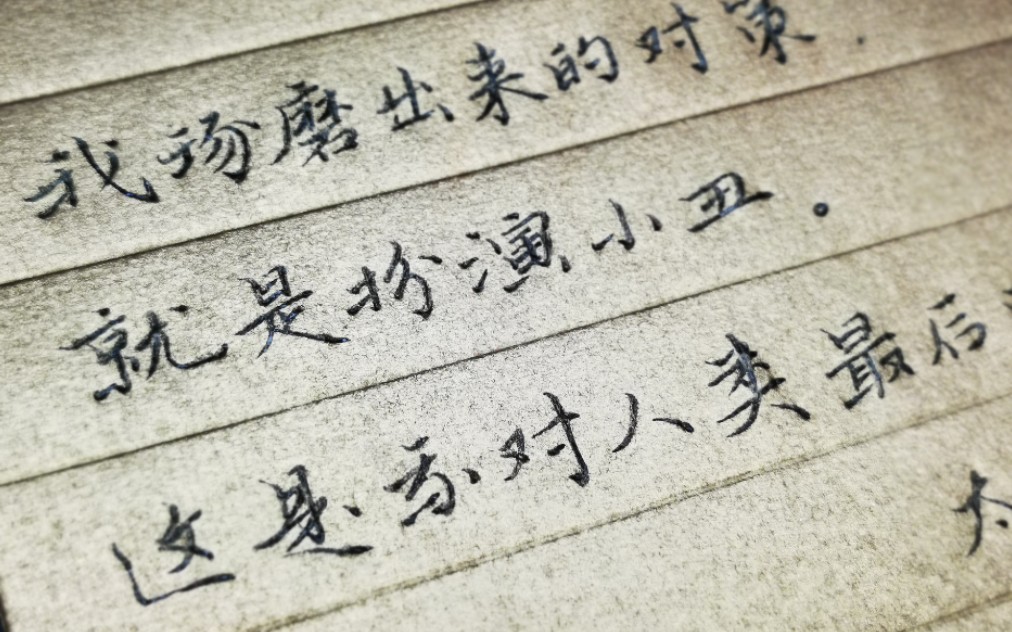 我琢磨出来的对策.
就是扮演小丑。
这是我对人类最后
太